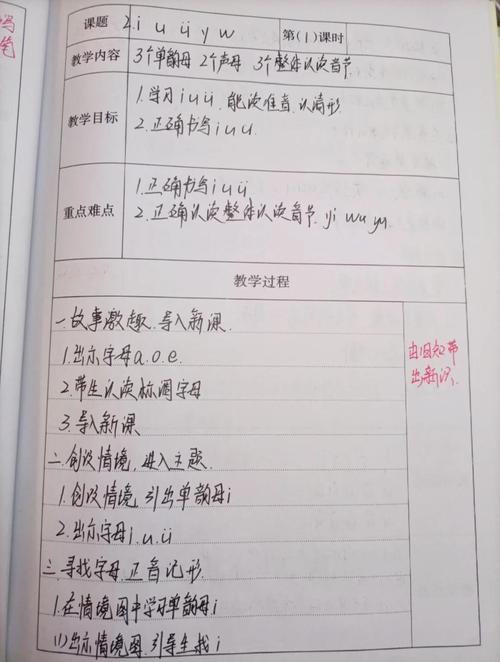 课题 2. i u ü y w 第(1)课时
教学内容 3个单韵母 2个声母 3个整体认读音节
教学目标
1.学习i u ü, 能读准音,认清形
2.正确书写i u ü.
重点难点
1.正确书写i u ü
2.正确认读整体认读音节. yi wu yu
教学过程
一.故事激趣.导入新课.
1.出示字母a.o.e.
2.带生认读标调字母
3.导入新课
二.创设情境,进入主题.
1.创设情境,引出单韵母i
2.出示字母i.u.ü
三.寻找字母.正音记形.
1.在情境图中学习单韵母i
(1)出示情境图.引导生找i
由旧知带
出新识.
笔